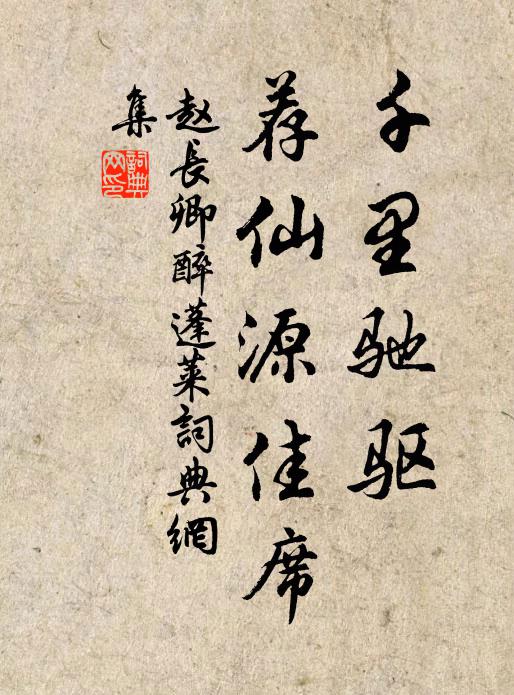 千里驰驱
荐仙源佳席
赵長卿醉蓬莱詞典網
集
詞典
网印